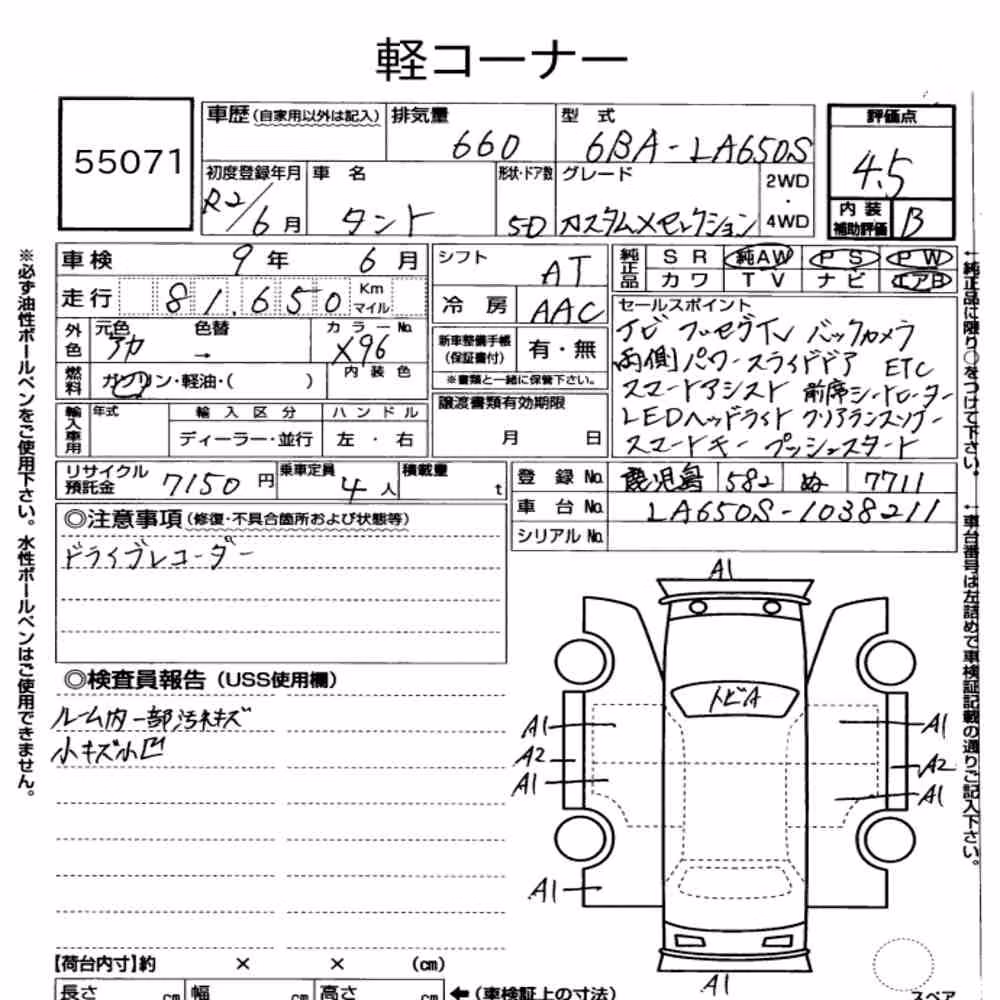 軽コーナー
55071
車歴(自家用以外は記入) 排気量 660 型式 6BA-LA650S
評価点 4.5
初度登録年月 R2/6月 車名 タント 形状・ドア数 5D グレード カスタムXセレクション 2WD・4WD
内装補助評価 B
車検 9年 6月
走行 81,650 Km マイル
外色 元色 アカ 色替 → カラーNo. X96
燃料 ガソリン・軽油・( ) 内装色
輸入車用 年式 輸入区分 ディーラー・並行 ハンドル 左・右
シフト AT
冷房 AAC
新車整備手帳(保証書付) 有・無
※書類と一緒に保管下さい。
譲渡書類有効期限 月 日
純正品 SR 純AW PS PW
カワ TV ナビ エアB
セールスポイント
ナビ フルセグTV バックカメラ
両側パワースライドドア ETC
スマートアシスト 前席シートヒーター
LEDヘッドライト クリアランスソナー
スマートキー プッシュスタート
リサイクル預託金 7150円 乗車定員 4人 積載量 t
登録No. 鹿児島 582 ぬ 7711
車台No. LA650S-1038211
シリアルNo.
◎注意事項(修復・不具合箇所および状態等)
ドライブレコーダー
◎検査員報告(USS使用欄)
ルーム内一部汚れキズ
小キズ小凹
A1
トビA
A1 A1
A2 A2
A1 A1
A1
A1
【荷台内寸】約 × × (cm)
長さ cm 幅 cm 高さ cm ←(車検証上の寸法)
スペア
※必ず油性ボールペンをご使用下さい。水性ボールペンはご使用できません。
←純正品に限り○をつけて下さい。
←車台番号は左詰めで車検証記載の通りご記入下さい。